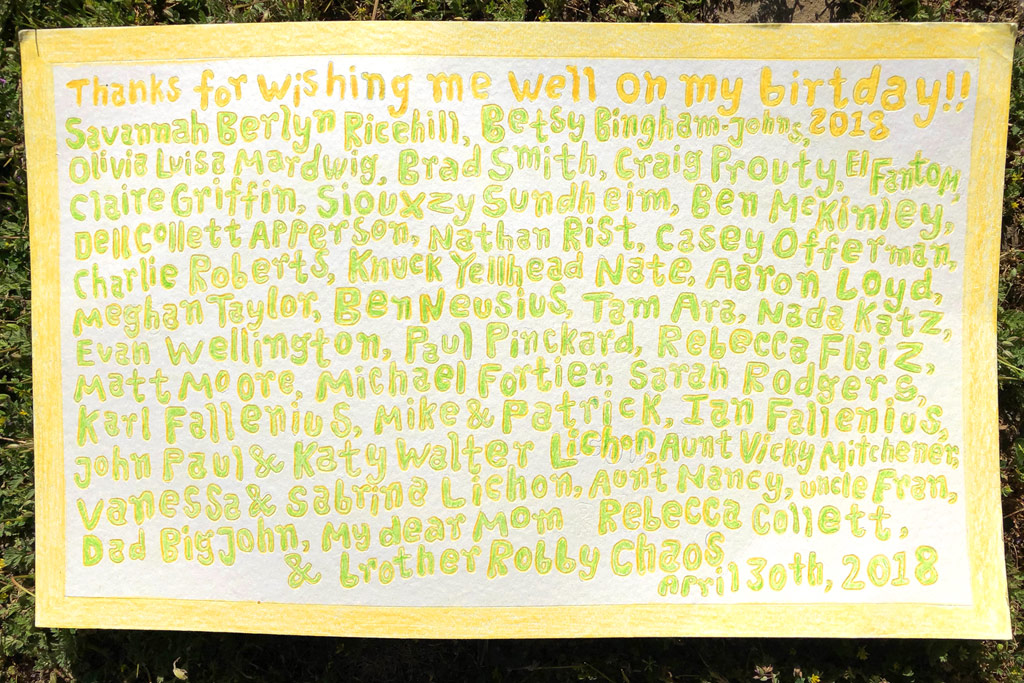 Thanks for wishing me well on my birtday!!
Savannah Berlyn Ricehill, Betsy Bingham-Johns, 2018
Olivia Luisa Mardwig, Brad Smith, Craig Prouty, El Fantom,
Claire Griffin, Siouxzy Sundheim, Ben McKinley,
Dell Collett Apperson, Nathan Rist, Casey Offerman,
Charlie Roberts, Knuck Yellhead Nate, Aaron Loyd,
Meghan Taylor, Ben Neusius, Tam Ara, Nada Katz,
Evan Wellington, Paul Pinckard, Rebecca Flaiz,
Matt Moore, Michael Fortier, Sarah Rodgers,
Karl Fallenius, Mike & Patrick, Ian Fallenius,
John Paul & Katy Walter Lichon, Aunt Vicky Mitchener,
Vanessa & Sabrina Lichon, Aunt Nancy, uncle Fran,
Dad Big John, My dear Mom Rebecca Collett,
& brother Robby Chaos
April 30th, 2018